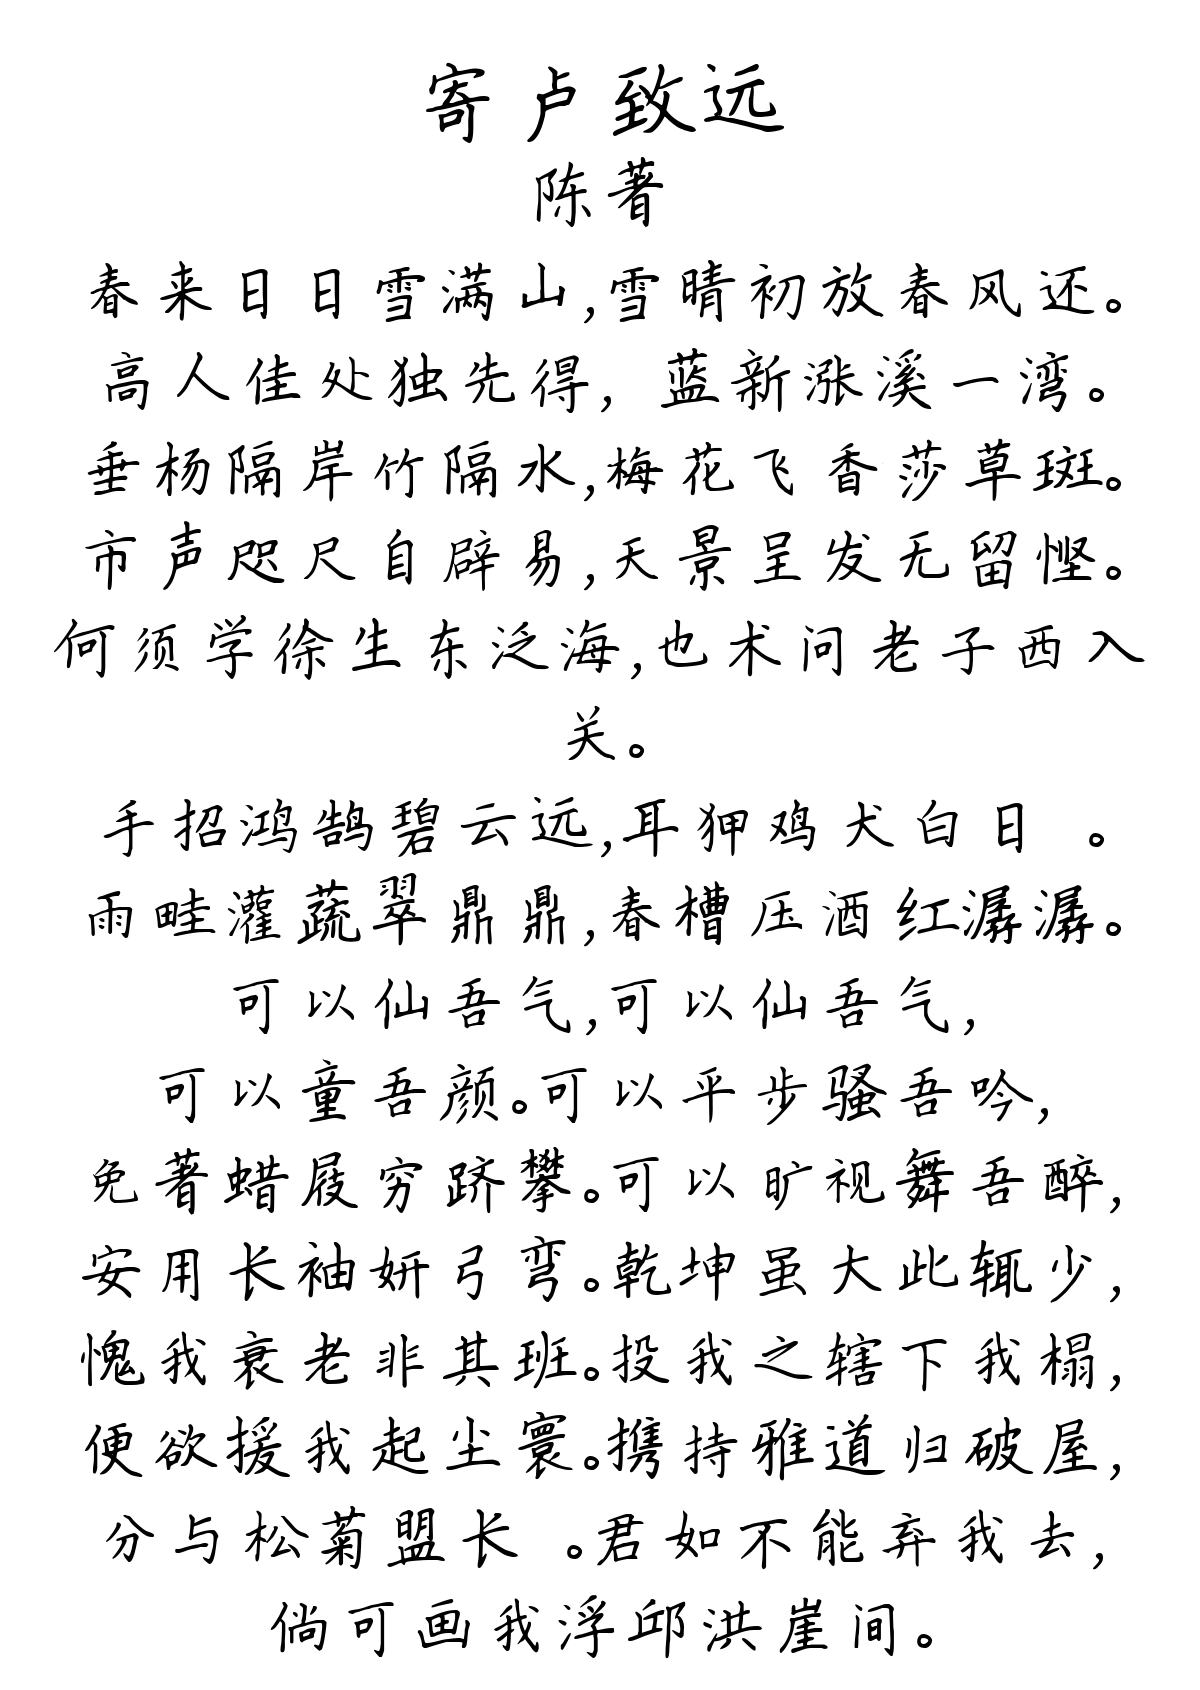 寄卢致远
陈著
春来日日雪满山,雪晴初放春风还。
高人佳处独先得，蓝新涨溪一湾。
垂杨隔岸竹隔水,梅花飞香莎草斑。
市声咫尺自辟易,天景呈发无留悭。
何须学徐生东泛海,也术问老子西入
关。
手招鸿鹄碧云远,耳狎鸡犬白日 。
雨畦灌蔬翠鼎鼎,春槽压酒红潺潺。
可以仙吾气,可以仙吾气,
可以童吾颜。可以平步骚吾吟,
免著蜡屐穷跻攀。可以旷视舞吾醉,
安用长袖妍弓弯。乾坤虽大此辄少,
愧我衰老非其班。投我之辖下我榻,
便欲援我起尘寰。携持雅道归破屋,
分与松菊盟长 。君如不能弃我去,
倘可画我浮邱洪崖间。